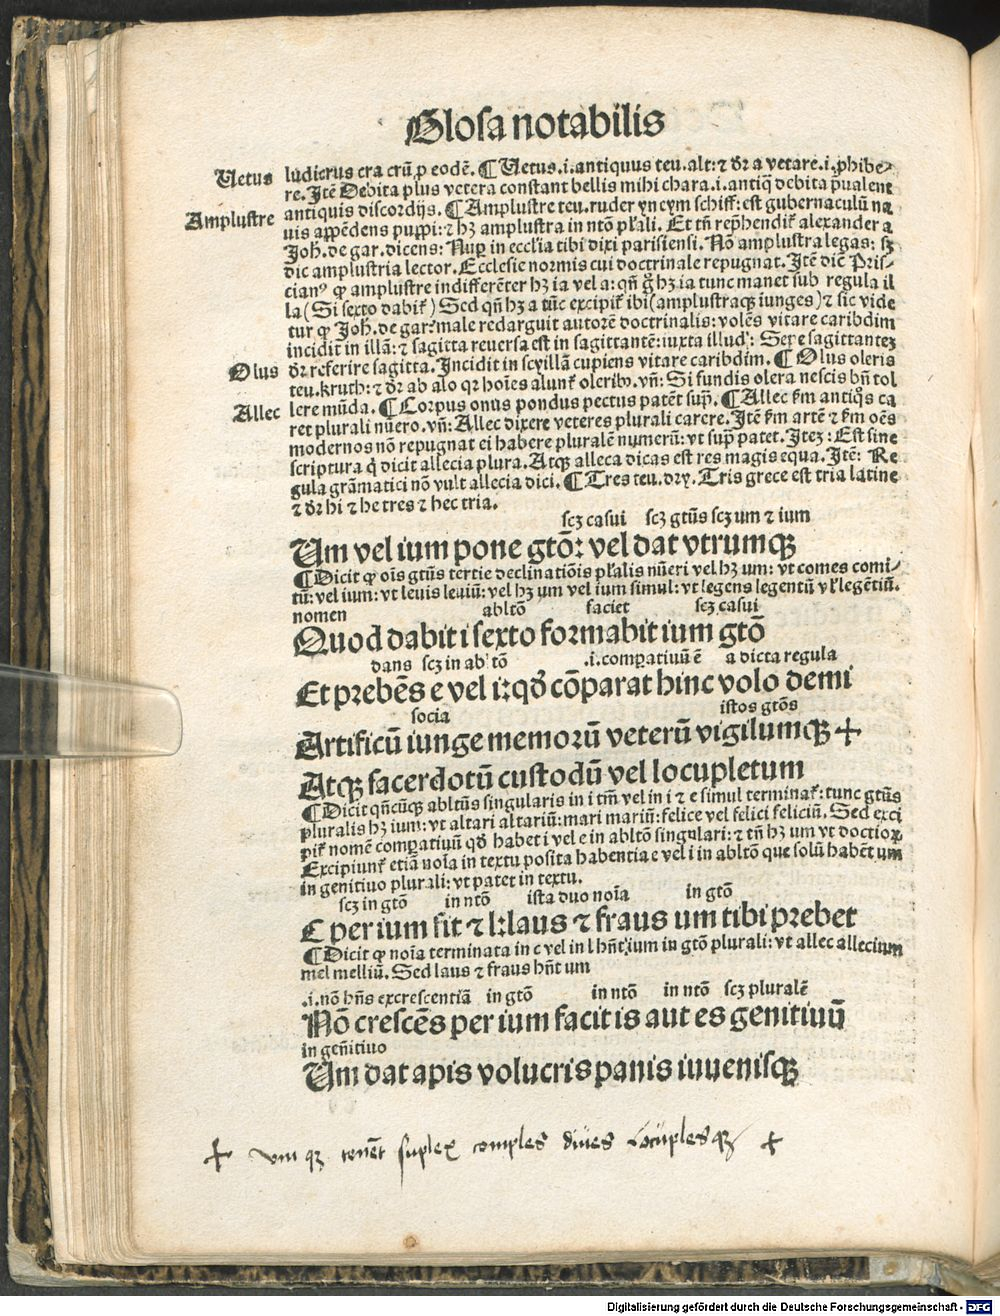 Glosa notabilis
Vetus ludicrus cra crū ꝑ eodē. ¶ Vetus .i. antiquus teu. alt: ⁊ dr̄ a vetare .i. ꝓhibe⸗
re. Itē Debita plus vetera constant bellis mihi chara .i. antiq̄ debita p̄ualent
Amplustre antiquis discordijs. ¶ Amplustre teu. ruder yn eym schiff: est gubernaculū na
uis appēdens puppi: ⁊ hꝫ amplustra in ntō pl̄ali. Et tn̄ rep̄hendit᷑ alexander a
Joh. de gar. dicens: Nuꝑ in ecclīa tibi dixi parisiensi. Nō amplustra legas: sꝫ
dic amplustria lector. Ecclesie normis cui doctrinale repugnat. Itē dīc Pris⸗
cianꝰ ꝙ amplustre indifferēter hꝫ ia vel a: qn̄ g̊ hꝫ ia tunc manet sub regula il
la (Si sexto dabit᷑) Sed qn̄ hꝫ a tūc excipit᷑ ibi (amplustraqꝫ iunges) ⁊ sic vide
tur ꝙ Joh. de gar. male redarguit autorē doctrinalis: volēs vitare caribdim
incidit in illā: ⁊ sagitta reuersa est in sagittantē: iuxta illud: Sepe sagittantez
Olus dr̄ referire sagitta. Incidit in scyillā cupiens vitare caribdim. ¶ Olus oleris
teu. kruth: ⁊ dr̄ ab alo qꝛ hoīes alunt᷑ olerib. vn̄: Si fundis olera nescis bn̄ tol
Allec lere mūda. ¶ Corpus onus pondus pectus patēt sup̄. ¶ Allec km̄ antiq̊s ca
ret plurali nūero. vn̄: Allec dixere veteres plurali carere. Itē km̄ artē ⁊ km̄ oēs
modernos nō repugnat ei habere pluralē numerū: vt sup̄ patet. Itez: Est sine
scriptura q̇ dicit allecia plura. Atqꝫ alleca dicas est res magis equa. Itē: Re
gula grāmatici nō vult allecia dici. ¶ Tres teu. dry. Tris grece est tria latine
⁊ dr̄ hi ⁊ he tres ⁊ hec tria.
scꝫ casui scꝫ gtūs scꝫ um ⁊ ium
Um vel ium pone gtō: vel dat vtrumqꝫ
¶ Dicit ꝙ oīs gtūs tertie declinatiōis pl̄alis nūeri vel hꝫ um: vt comes comi⸗
tū: vel ium: vt leuis leuiū: vel hꝫ um vel ium simul: vt legens legentū vl̄ legētiū.
nomen abltō faciet scꝫ casui
Quod dabit i sexto formabit ium gtō
dans scꝫ in abltō .i. comꝑatiuū ē a dicta regula
Et prebēs e vel i: qd̓ cōparat hinc volo demi
socia istos gtōs
Artificū iunge memorū veterū vigilumqꝫ +
Atqꝫ sacerdotū custodū vel locupletum
¶ Dicit qn̄cūqꝫ abltūs singularis in i tm̄ vel in i ⁊ e simul terminat᷑: tunc gtūs
pluralis hꝫ ium: vt altari altariū: mari mariū: felice vel felici feliciū. Sed exci
pit᷑ nomē comꝑatiuū qd̓ habet i vel e in abltō singulari: ⁊ tn̄ hꝫ um vt doctioꝝ
Excipiunt᷑ etiā noīa in textu posita habentia e vel i in abltō que solū habēt um
in genitiuo plurali: vt patet in textu.
scꝫ in gtō in ntō ista duo noīa in gtō
C per ium fit ⁊ l: laus ⁊ fraus um tibi prebet
¶ Dicit ꝙ noīa terminata in c vel in l hn̄t ium in gtō plurali: vt allec allecium
mel melliū. Sed laus ⁊ fraus hn̄t um
.i. nō hn̄s excrescentiā in gtō in ntō in ntō scꝫ pluralē
Nō crescēs per ium facit is aut es genitiuū
in gen̄itiuo
Um dat apis volucris panis iuuenisqꝫ
+ um qꝫ tenēt suplex comples diues Locuplesqꝫ +
Digitalisierung gefördert durch die Deutsche Forschungsgemeinschaft - DFG